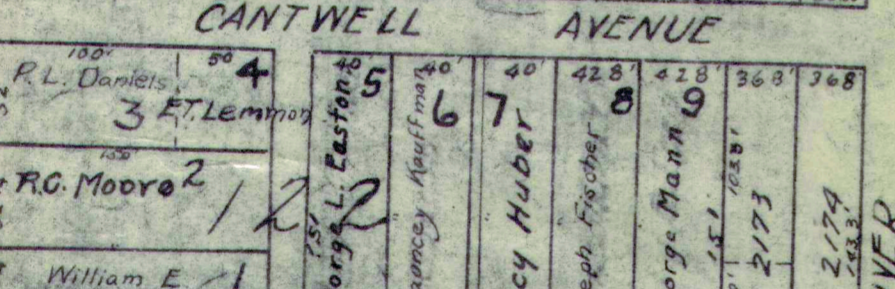 CANTWELL AVENUE
100' 50 4
P. L. Daniels
3 E.T. Lemmon
150'
R.C. Moore 2
William E 1
1 2 2
40' 5
orge L. Easton
15'
40' 6
auncey Kauffman
40' 7
cy Huber
428' 8
eph Fischer
428' 9
orge Mann
151'
368'
103.8'
2173
368
2174
143.3'
VER